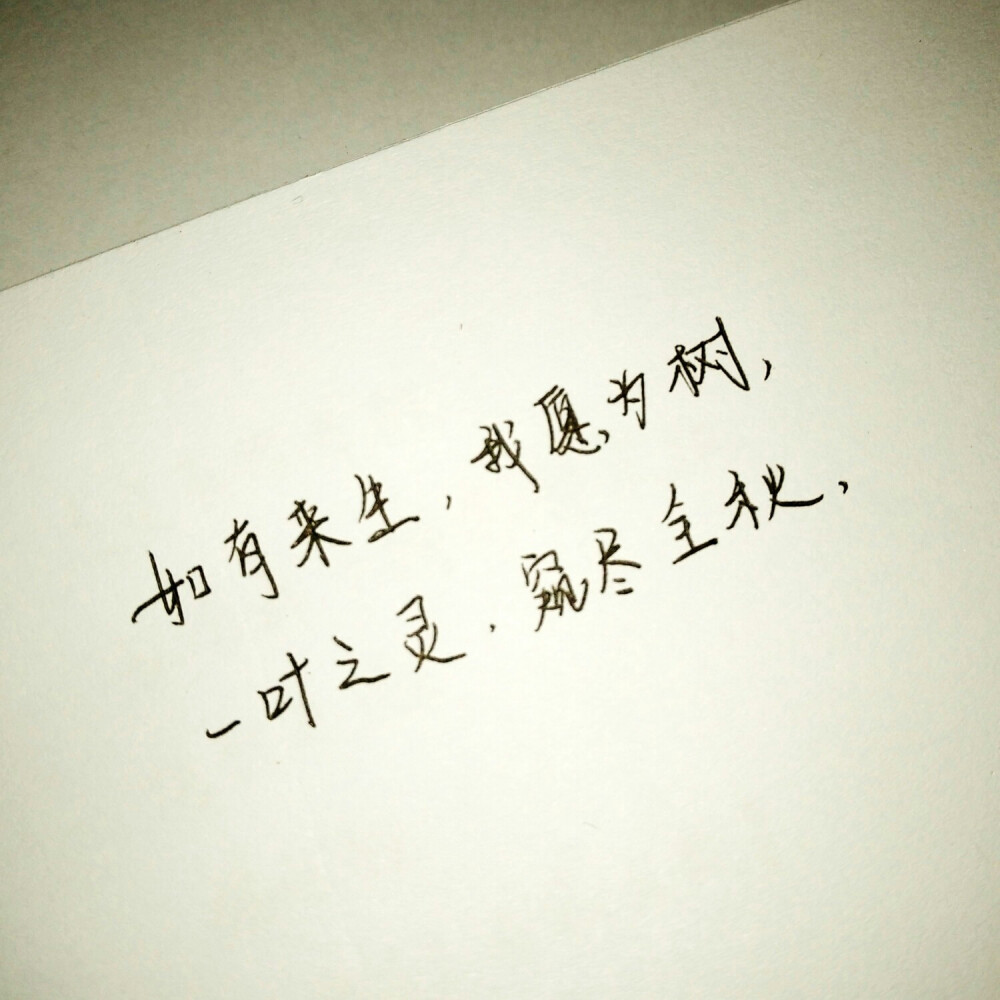 如有来生，我愿为树，
一叶之灵，窥尽全秋，